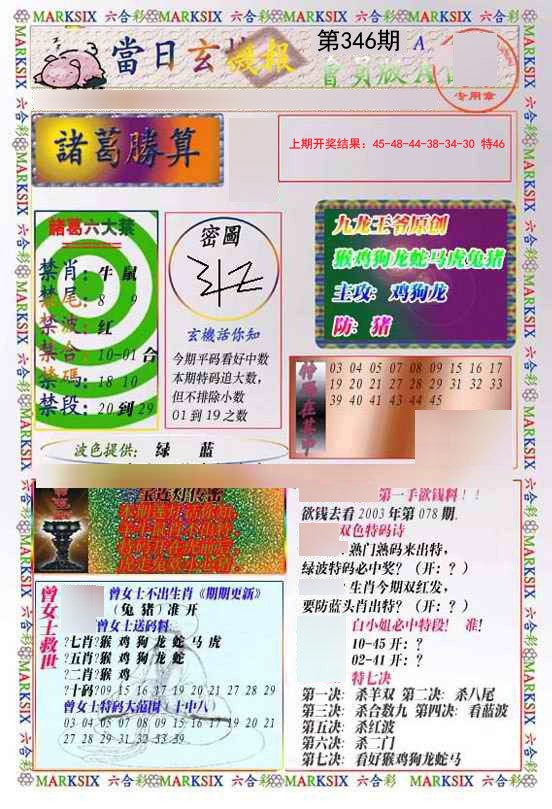 MARKSIX 六合彩 MARKSIX 六合彩 MARKSIX 六合彩 MARKSIX 六合彩 MARKSIX
當日玄機報
第346期 A
會員版A
专用章
諸葛勝算
上期开奖结果：45-48-44-38-34-30 特46
諸葛六大禁
禁肖：牛 鼠
禁尾：8 9
禁波：红
禁合：10-01合
禁碼：18 10
禁段：20到29
密圖
玄機話你知
今期平码看好中数
本期特码追大数,
但不排除小数
01到19之数
九龙王爷原创
猴鸡狗龙蛇马虎兔猪
主攻：鸡狗龙
防：猪
03 04 05 07 08 09 15 16 17
19 20 21 27 28 29 31 32 33
39 40 41 43 44 45
波色提供： 绿 蓝
曾女士救世
曾女士不出生肖《期期更新》
(兔 猪) 准 开
曾女士送码料:
?七肖?猴 鸡 狗 龙 蛇 马 虎
?五肖?猴 鸡 狗 龙 蛇
?二肖?猴 鸡
?十码?09 15 16 17 19 20 21 27 28 29
曾女士特码大范围（十中八）
03 04 05 07 08 09 15 16 17 19 20 21
27 28 29 31 32 33 39
第一手欲钱料！！
欲钱去看2003年第078期.
双色特码诗
熟门熟码来出特,
绿波特码必中奖?（开：?）
生肖今期双红发,
要防蓝头肖出特?（开：?）
白小姐必中特段! 准!
10-45 开：?
02-41 开：?
特七决
第一决：杀羊双 第二决：杀八尾
第三决：杀合数九 第四决：看蓝波
第五决：杀红波
第六决：杀二门
第七决：看好猴鸡狗龙蛇马
MARKSIX 六合彩 MARKSIX 六合彩 MARKSIX 六合彩 MARKSIX 六合彩 MARKSIX